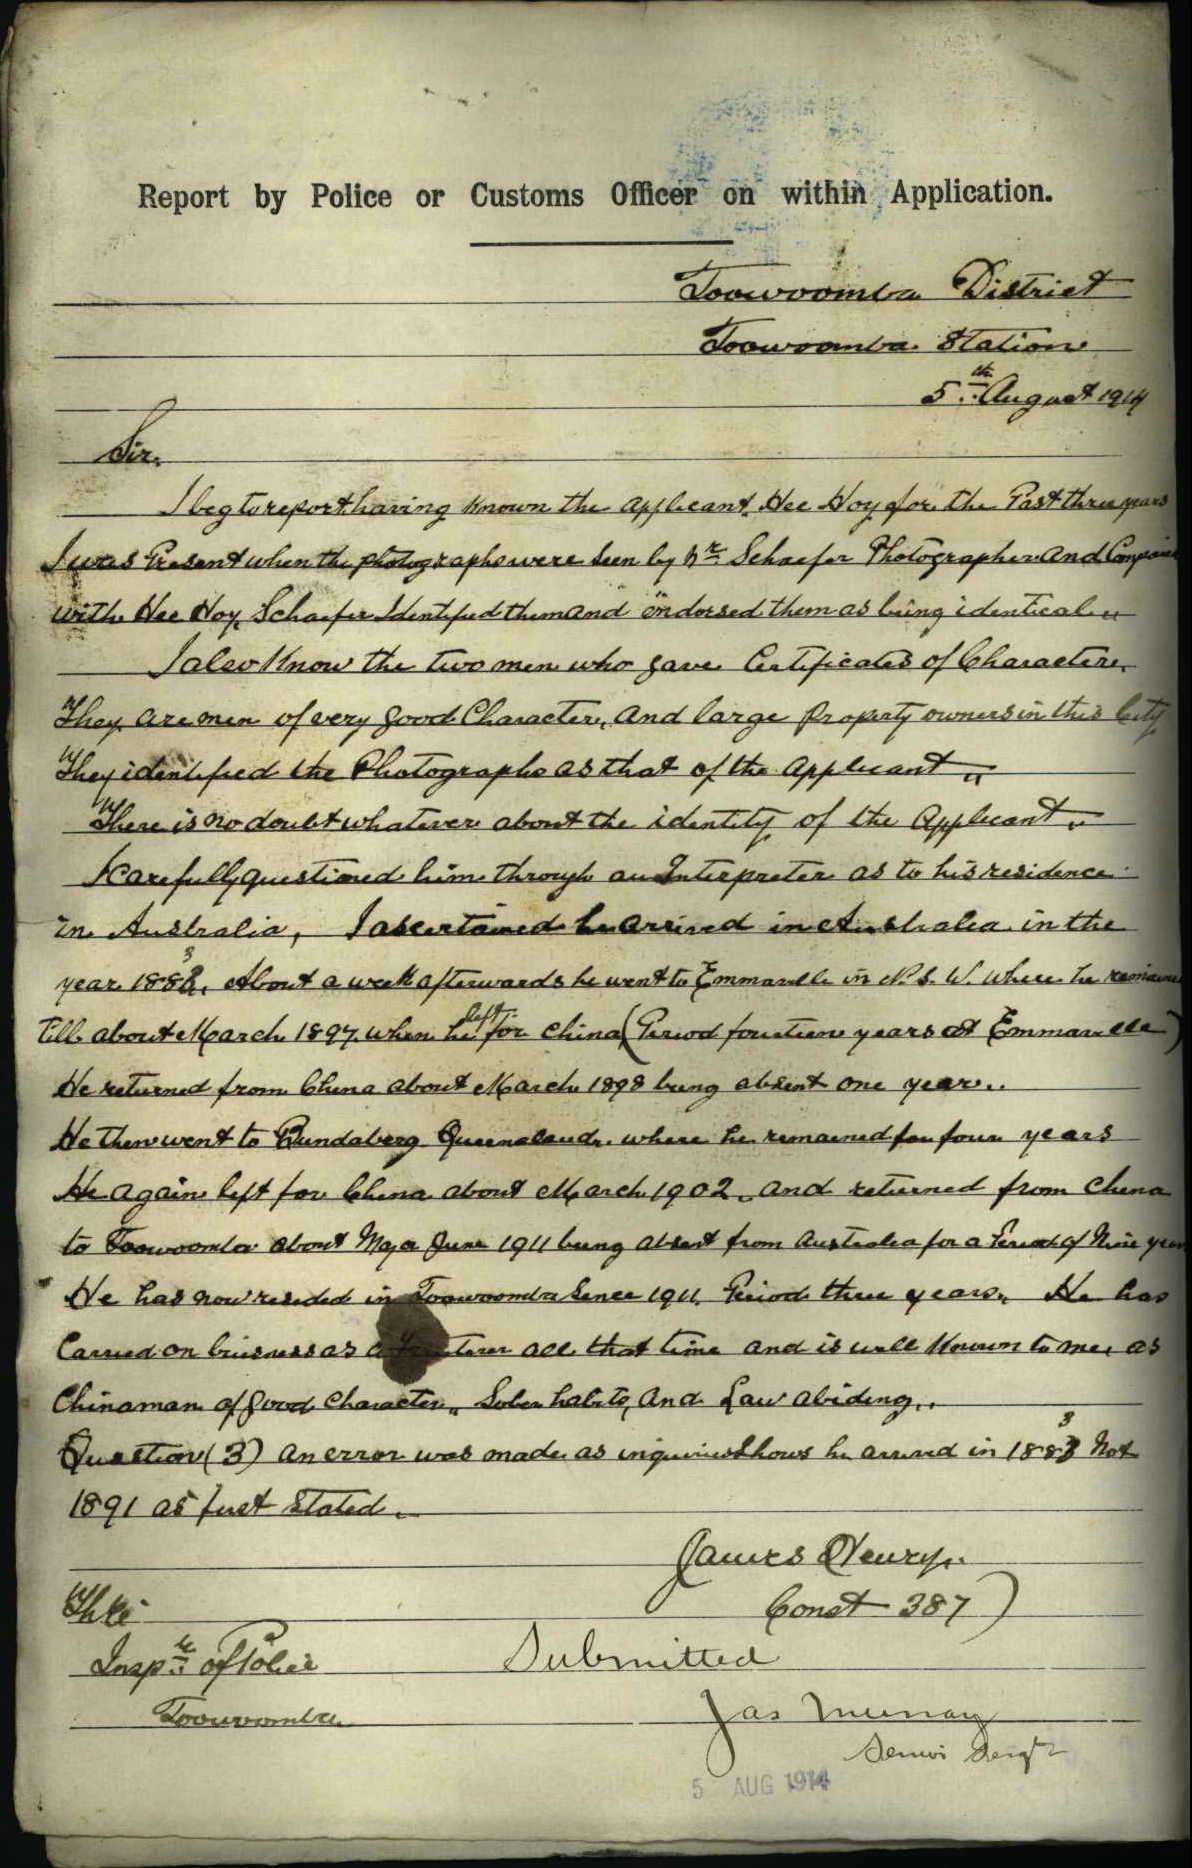 Report by Police or Customs Officer on within Application.
Toowoomba District
Toowoomba Station
5th August 1914
Sir.
I beg to report having known the applicant Hee Hoy for the Past three years
I was Present when the photographs were seen by Mr Schaefer Photographer and Compaired
with Hee Hoy, Schaefer Identified them and endorsed them as being identical
I also Know the two men who gave Certificates of Character,
They are men of very good Character, and large property owners in this City
They identified the Photographs as that of the applicant
There is no doubt whatever about the identity of the applicant
I carefully questioned him through an Interpreter as to his residence
in Australia, I ascertained he arrived in Australia in the
year 1883. About a week afterwards he went to Emmaville in N.S.W. where he remained
till about March 1897 when he left for China (Period fourteen years at Emmaville)
He returned from China about March 1898 being absent one year..
He then went to Bundaberg Queensland, where he remained for four years
He again left for China about March 1902, and returned from China
to Toowoomba about May or June 1911 being absent from Australia for a Period of Nine years
He has now resided in Toowoomba Since 1911. Period three years. He has
Carried on buisness as a Fruiterer all that time and is well known to me, as
Chinaman of good character, Sober habits, and Law abiding..
Question (3) an error was made as inquiries Shows he arrived in 1883 Not
1891 as first Stated.
James Henry.
Const 387)
The
Inspr of Police
Toowoomba
Submitted
Jas Murray
Senior Sergt
5 AUG 1914